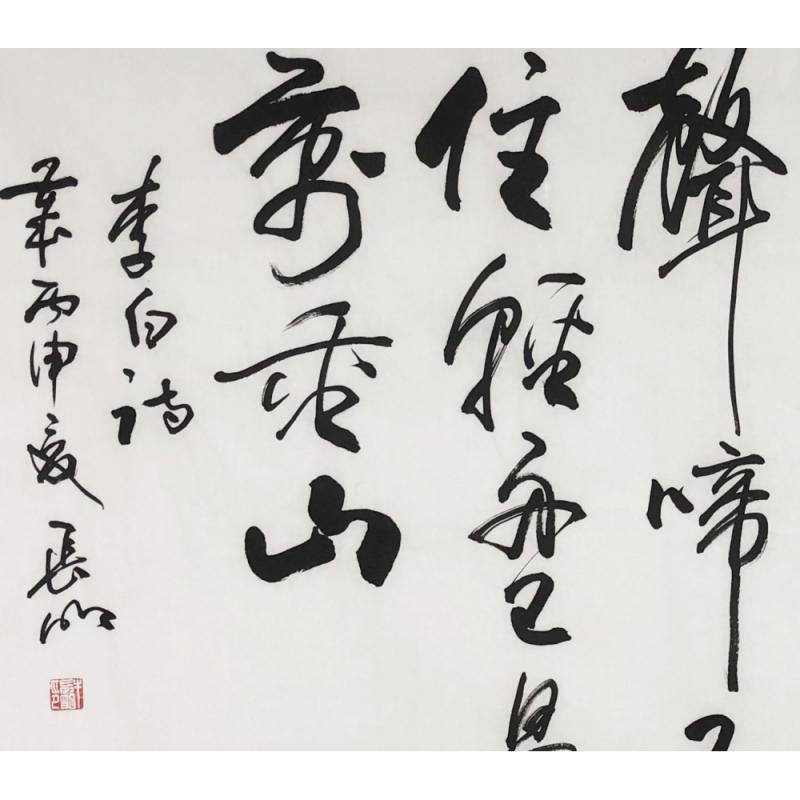 聲啼
住輕舟已
萬重山
李白詩
丙申夏長